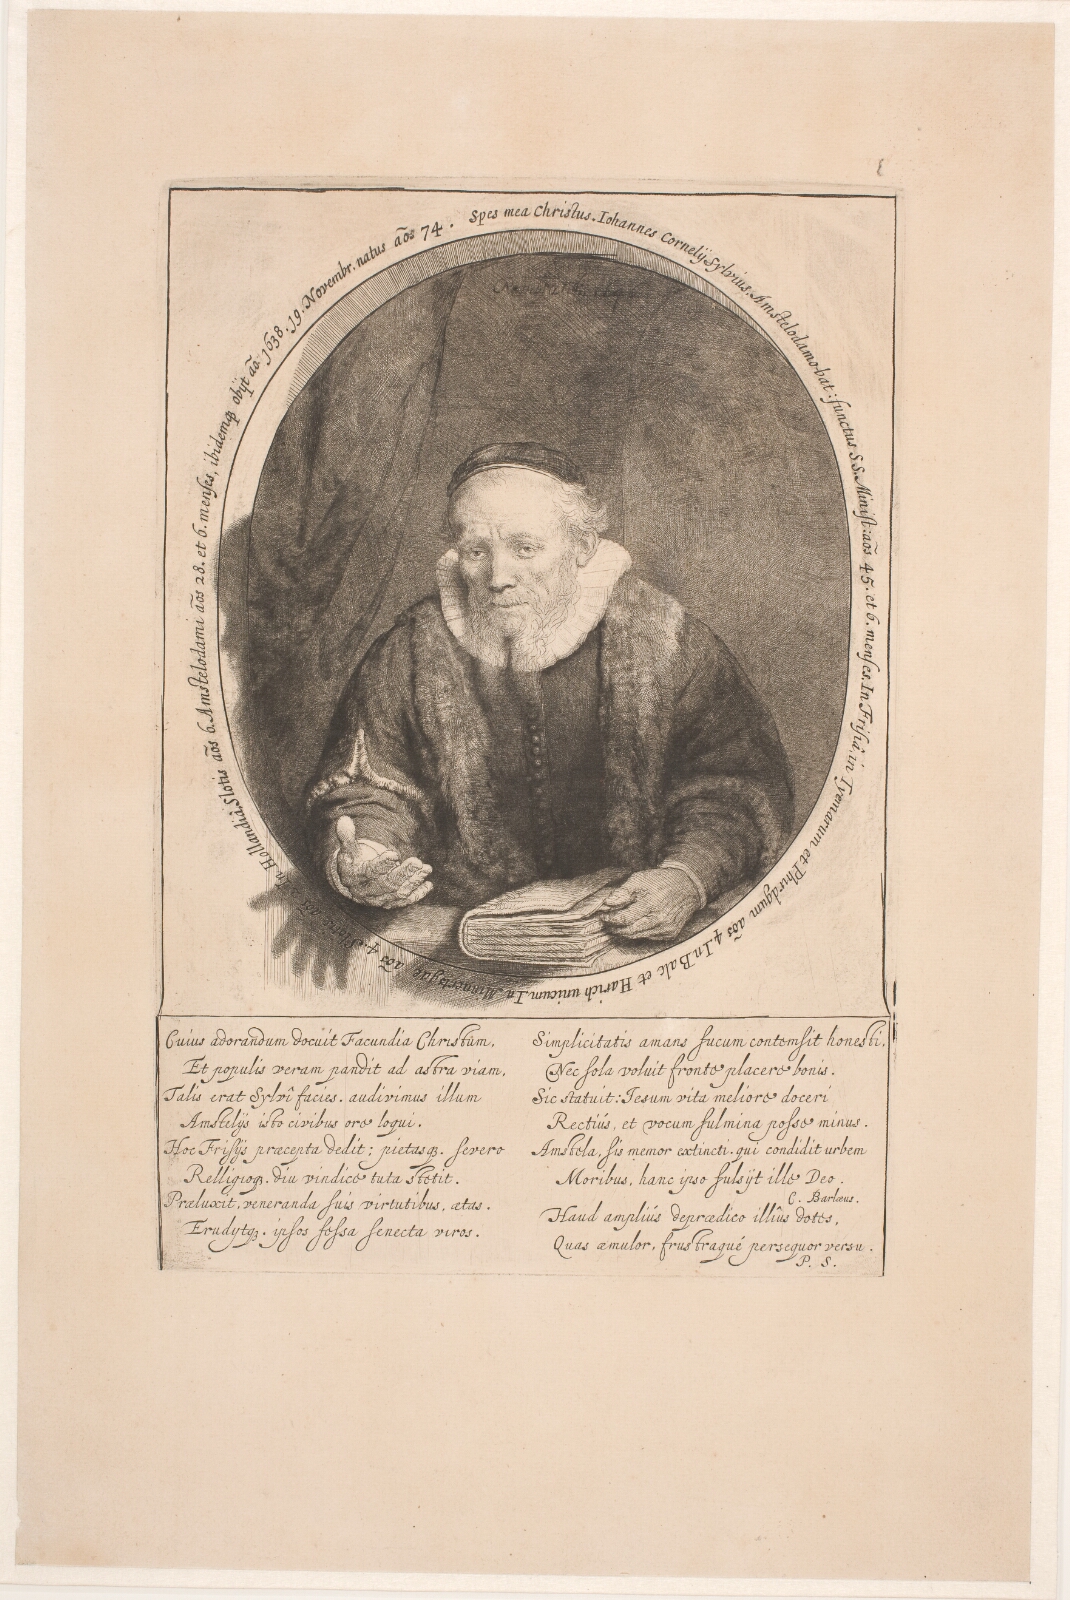 Spes mea Christus. Iohannes Cornelij Sylvius, Amstelodamo-bat: functus S.S. Minist: aõs 45. et 6. menses. In Frisiâ, in Tyemarum et Phirdgum aõs 4. In Balc et Harich unicum. In Minnertsgae aõs 4. Slotis aõs 6. Amstelodami aõs 28. et 6. menses, ibidemq obijt aõ. 1638. 19. Novembr. natus aõs 74.
Cuius adorandum docuit Facundia Christum,
Et populis veram pandit ad astra viam,
Talis erat Sylvî facies. audivimus illum
Amstelijs isto civibus ore loqui.
Hoc Frisijs præcepta dedit; pietasq. severo
Relligioq. diu vindice tuta stetit.
Præluxit, veneranda suis virtutibus, ætas.
Erudytq. ipsos fessa senecta viros.
Simplicitatis amans fucum contemsit honesti,
Nec sola voluit fronte placere bonis.
Sic statuit: Iesum vita meliore doceri
Rectiùs, et vocum fulmina posse minus.
Amstela, sis memor extincti. qui condidit urbem
Moribus, hanc ipso fulsijt ille Deo.
C. Barlæus.
Haud ampliùs deprædico illiûs dotes,
Quas æmulor, frustraqué persequor versu.
P. S.